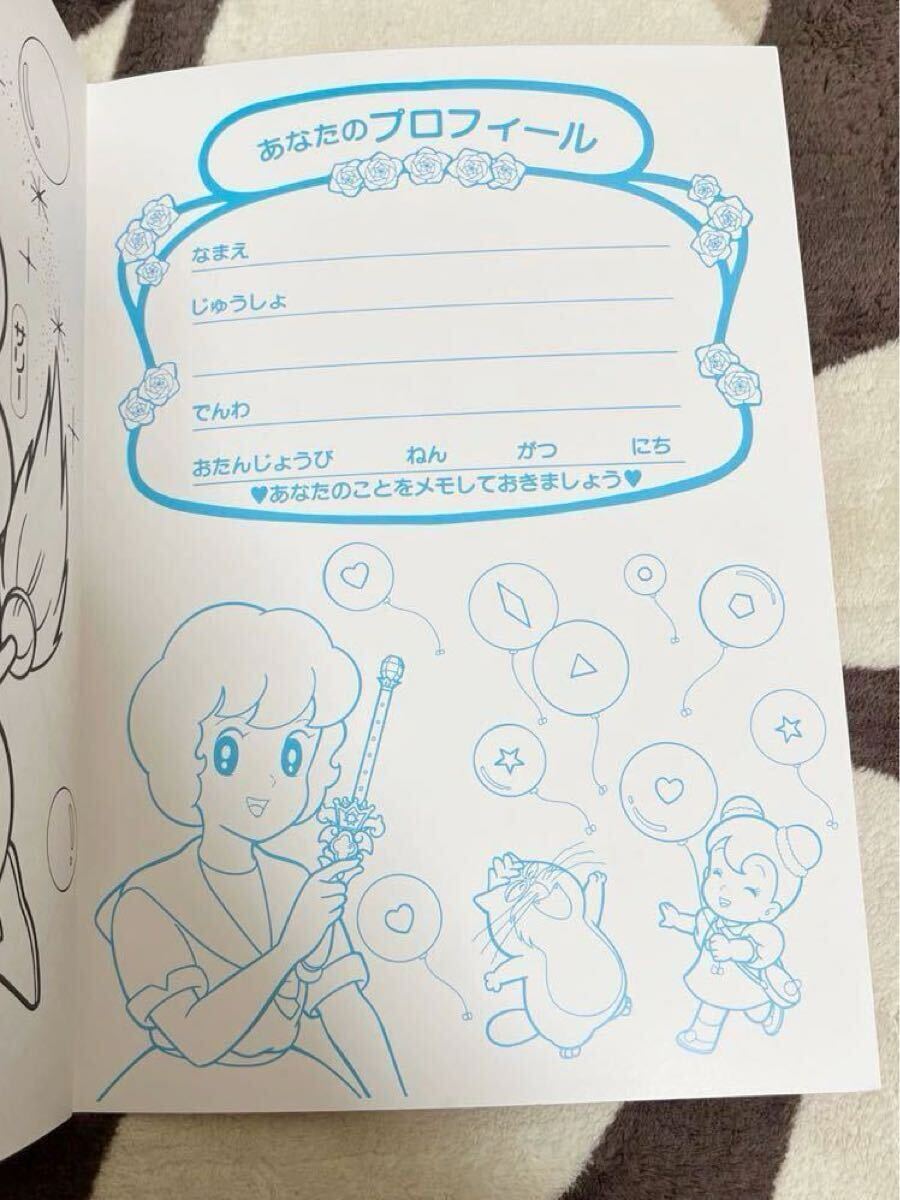 あなたのプロフィール
なまえ
じゅうしょ
でんわ
おたんじょうび ねん がつ にち
♥あなたのことをメモしておきましょう♥